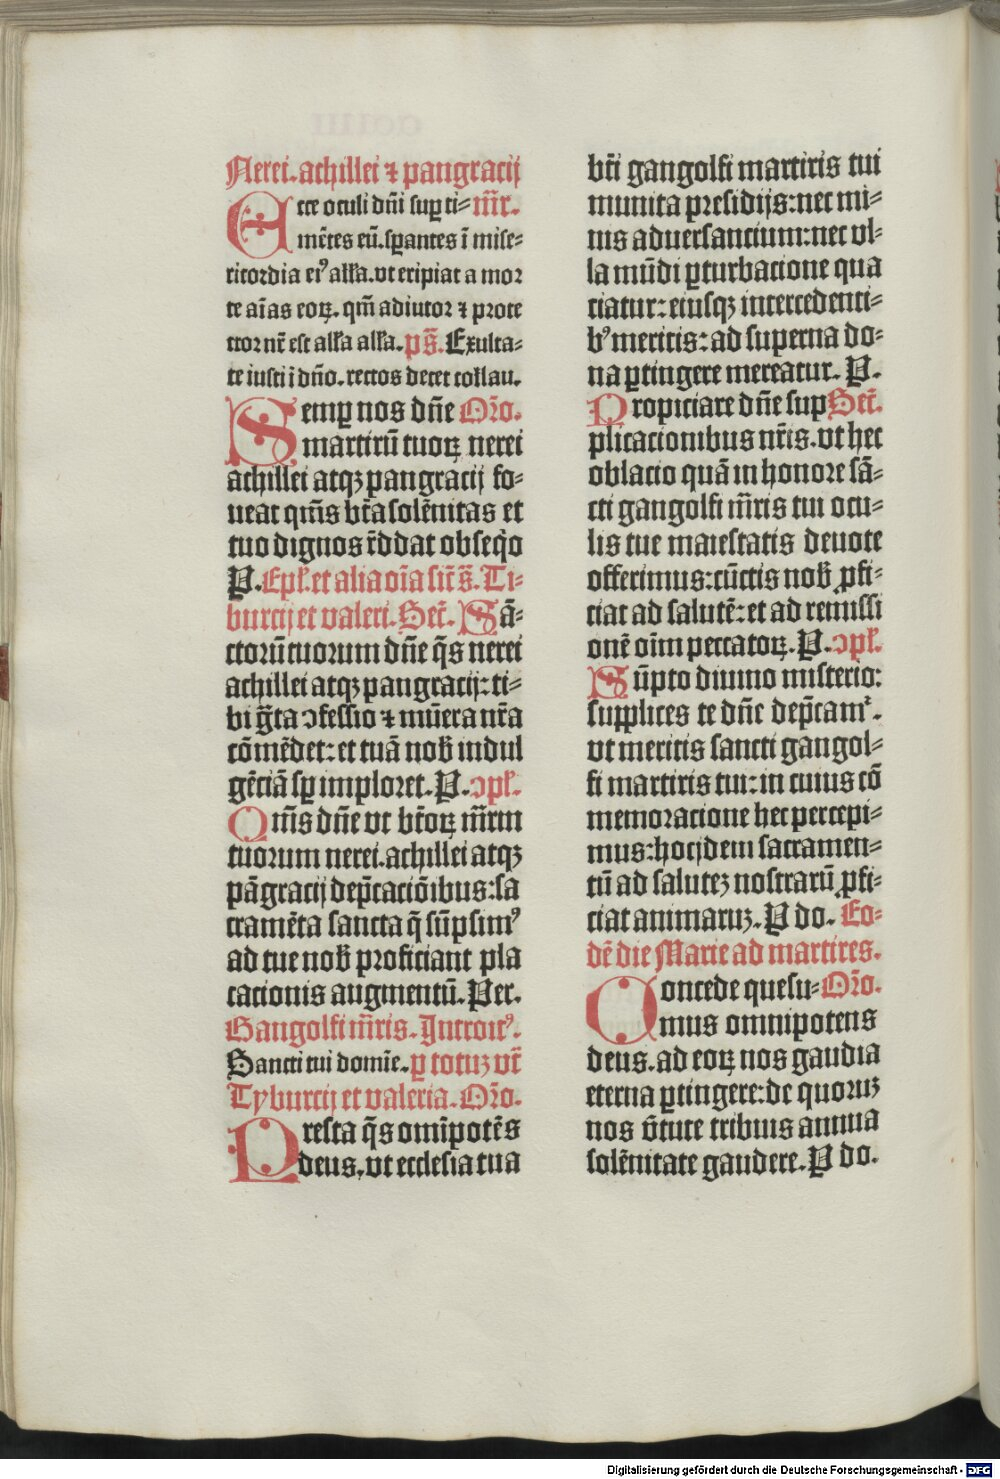 Nerei. achillei ⁊ pangracij
Ecce oculi dñi suꝑ ti⸗ m̃r.
mẽtes eũ. sꝑantes ĩ mise⸗
ricordia eiꝰ alľa. vt eripiat a mor
te aĩas eoꝝ. qm̃ adiutor ⁊ prote
ctor nr̃ est alľa alľa. ps̃. Exulta⸗
te iusti ĩ dño. rectos decet collau.
Semꝑ nos dñe Or̃o.
martirũ tuoꝝ nerei
achillei atqꝫ pangracij fo⸗
ueat qm̃s btã solẽnitas et
tuo dignos r̃ddat obseqͦo
P. Epľ. et alia oĩa sic̃ s̃. Ti⸗
burcij et valeri. Sec̃. Sã⸗
ctorũ tuorum dñe q̃s nerei
achillei atqꝫ pangracij: ti⸗
bi g̃ta ↄfessio ⁊ mũera nr̃a
cõmẽdet: et tuã nob̃ indul
gẽciã sꝑ imploret. P. ↄpľ.
Qm̃s dñe vt btõꝝ m̃rm
tuorum nerei. achillei atqꝫ
pãgracij dep̃cacõibus: sa
cramẽta sancta q̃ sũpsimꝰ
ad tue nob̃ proficiant pla
cacionis augmentũ. Per.
Gangolfi m̃ris. Introitꝰ.
Sancti tui domĩe. ꝑ totuꝫ vt̃
Tyburcij et valeria. Or̃o.
Presta q̃s om̃ipotẽs
deus. vt ecclesia tua
btĩ gangolfi martiris tui
munita presidijs: nec mi⸗
nis aduersancium: nec vl⸗
la mũdi ꝑturbacione qua
ciatur: eiusqꝫ intercedenti⸗
bꝰ meritis: ad superna do⸗
na ꝑtingere mereatur. P.
Propiciare dñe sup Sec̃.
plicacionibus nr̃is. vt hec
oblacio quã in honore sã⸗
cti gangolfi m̃ris tui ocu⸗
lis tue maiestatis deuote
offerimus: cũctis nob̃ ꝓfi⸗
ciat ad salutẽ: et ad remissi
onẽ oĩm peccatoꝝ. P. ↄpľ.
Sũpto diuino misterio:
supplices te dñe dep̃camᷣ.
vt meritis sancti gangol⸗
fi martiris tui: in cuius cõ
memoracione hec percepi⸗
mus: hocjdem sacramen⸗
tũ ad salutez nostrarũ ꝓfi⸗
ciat animaruꝫ. P do. Eo⸗
dẽ die Marie ad martires.
Concede quesu⸗ Or̃o.
mus omnipotens
deus. ad eoꝝ nos gaudia
eterna ꝑtingere: de quoruꝫ
nos ṽtute tribuis annua
solẽnitate gaudere. P do.
Digitalisierung gefördert durch die Deutsche Forschungsgemeinschaft - DFG